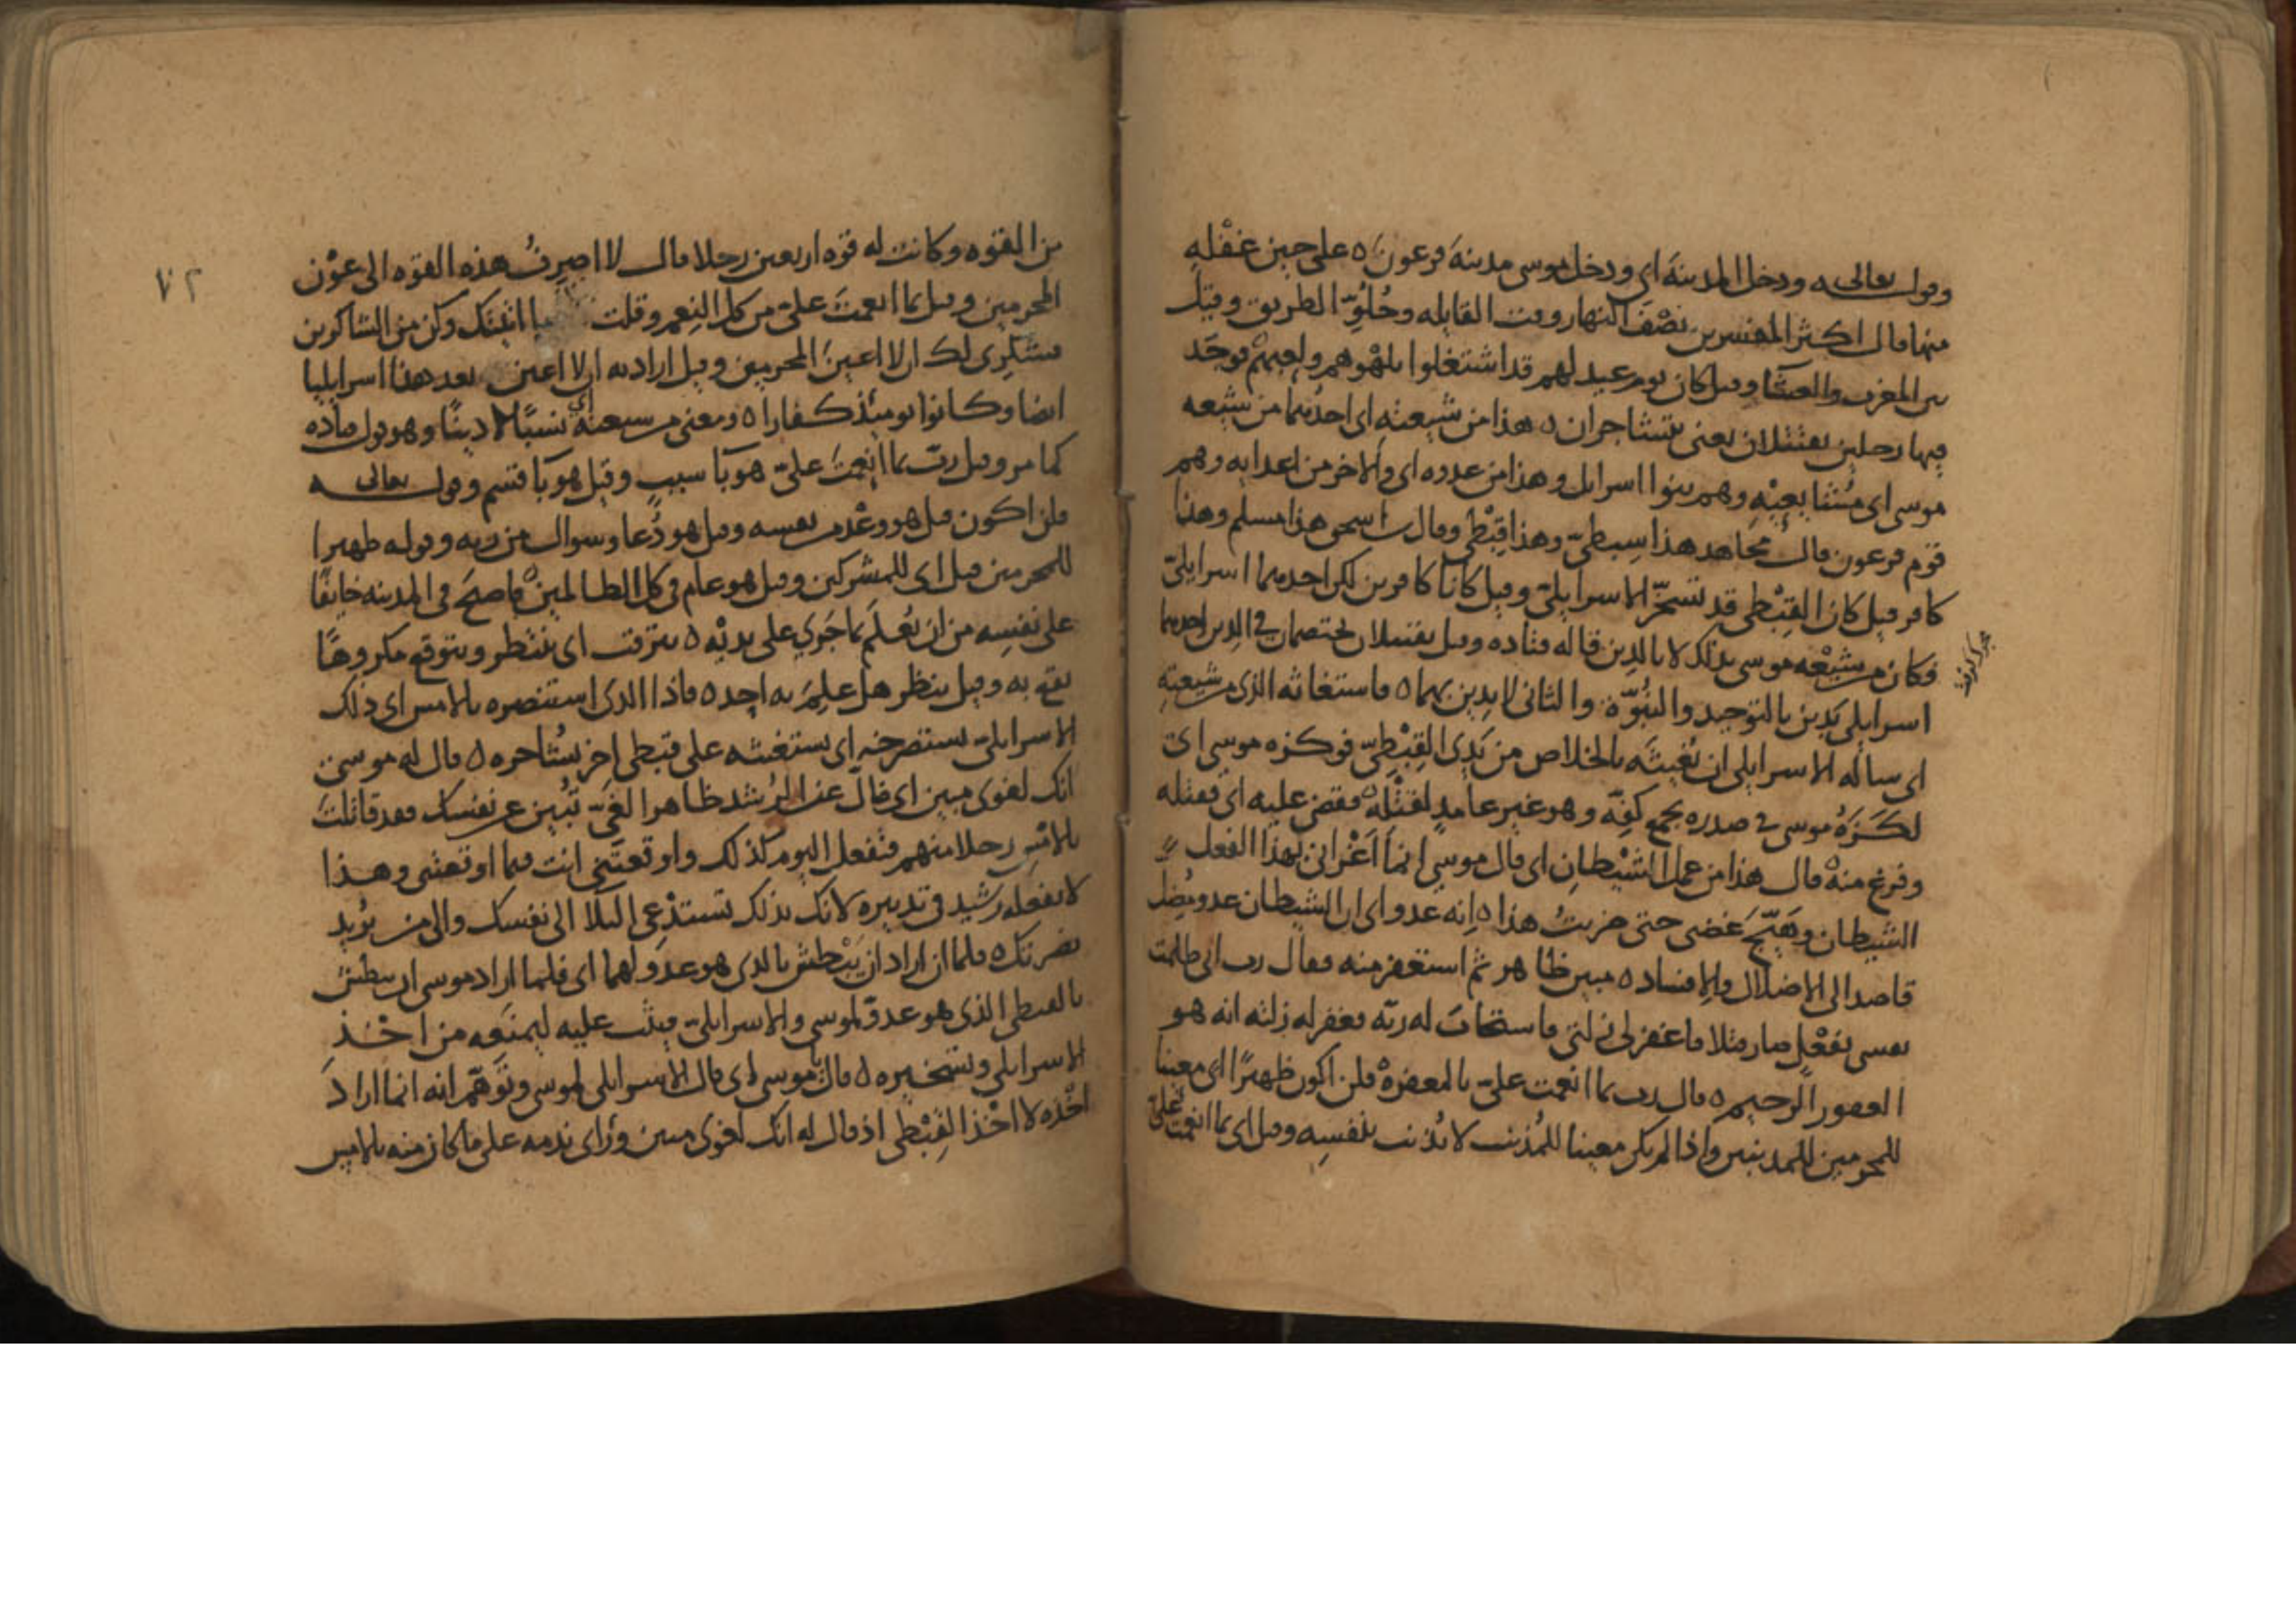 وقوله تعالى ودخل المدينة اي ودخل موسى مدينة فرعون ه على حين غفلة
منها قال اكثر المفسرين نصف النهار وقت القايله وخلو الطريق وقيل
بين المغرب والعشا وقيل كان يوم عيد لهم قد اشتغلوا بلهوهم ولعبهم فوجد
فيها رجلين يقتتلان يعني يتشاجران ه هذا من شيعته اي احدهما من شيعه
موسى اي متابعيه وهم بنوا اسرايل وهذا من عدوه اي والاخر من اعدايه وهم
قوم فرعون قال مجاهد هذا سبطي وهذا قبطي وقال اسحق هذا مسلم وهذا
كافر قيل كان القبطي قد تسخر الاسرايلي وقيل كانا كافرين لكن احدهما اسرايلي
فكان من شيعه موسى بذلك لا بالدين قاله قتاده وقيل يقتتلان يختصمان في الدين احدهما
اسرايلي يدين بالتوحيد والنبوة والثاني لا يدين بهما ه فاستغاثه الذي من شيعته
اي ساله الاسرايلي ان يغيثه بالخلاص من يدي القبطي فوكزه موسى اي
لكزه موسى في صدره بجمع كفه وهو غير عامد لقتله ه فقضى عليه اي فقتله
وفرغ منه ه قال هذا من عمل الشيطان اي قال موسى انما اغراني بهذا الفعل
الشيطان وهيج غضبي حتى ضربت هذا ه انه عدو اي ان الشيطان عدو مضل
قاصد الى الاضلال والافساد ه مبين ظاهر ثم استغفر منه فقال رب اني ظلمت
نفسي بفعل صار مثلا فاغفر لي زلتي فاستجاب له ربه فغفر له زلته انه هو
الغفور الرحيم ه قال رب بما انعمت علي بالمغفرة فلن اكون ظهيرا اي معينا
للمجرمين للمذنبين واذا لم يكن معينا للمذنب لا يذنب بنفسه وقيل اي بما انعمت علي
من القوه وكانت له قوه اربعين رجلا قال لا اصرف هذه القوه الى عون
المجرمين وقيل بما انعمت علي من كل النعم وقلت ما اتيتك وكن من الشاكرين
فشكري لك ان لا اعين المجرمين وقيل اراد به ان لا اعين بعد هذا اسرايليا
ايضا وكانوا يومئذ كفارا ه ومعنى من شيعته اي نسبا لا دينا وهو قول قتاده
كما مر وقيل رب بما انعمت علي هو با سبب وقيل هو با قسم وقوله تعالى
فلن اكون قيل هو وعد من نفسه وقيل هو دعا وسوال من ربه وقوله ظهيرا
للمجرمين قيل اي للمشركين وقيل هو عام في كل الظالمين ه فاصبح في المدينه خايفا
على نفسه من ان يعلم بما جرى على يديه ه يترقب اي ينتظر ويتوقع مكروها
يقع به وقيل ينظر هل علم به احد ه فاذا الذي استنصره بالامس اي ذلك
الاسرايلي يستصرخه اي يستغيثه على قبطي اخر يشاجره ه قال له موسى
انك لغوي مبين اي ضال عن الرشد ظاهر الغي تبين عن نفسك فقد قاتلت
بالامس رجلا منهم فتفعل اليوم كذلك واوقعتني انت فيما اوقعتني وهذا
لا يفعله رشيد في تدبيره لانك بذلك تستدعي البلا الى نفسك والى من يريد
نصرتك ه فلما ان اراد ان يبطش بالذي هو عدو لهما اي فلما اراد موسى ان يبطش
بالقبطي الذي هو عدو لموسى والاسرايلي فيثب عليه ليمنعه من اخذ
الاسرايلي وتسخيره ه قال يا موسى اي قال الاسرايلي لموسى وتوهم انه انما اراد
اخذه لا اخذ القبطي اذ قال له انك لغوي مبين وراى ندمه على ما كان منه بالامس
٧٢